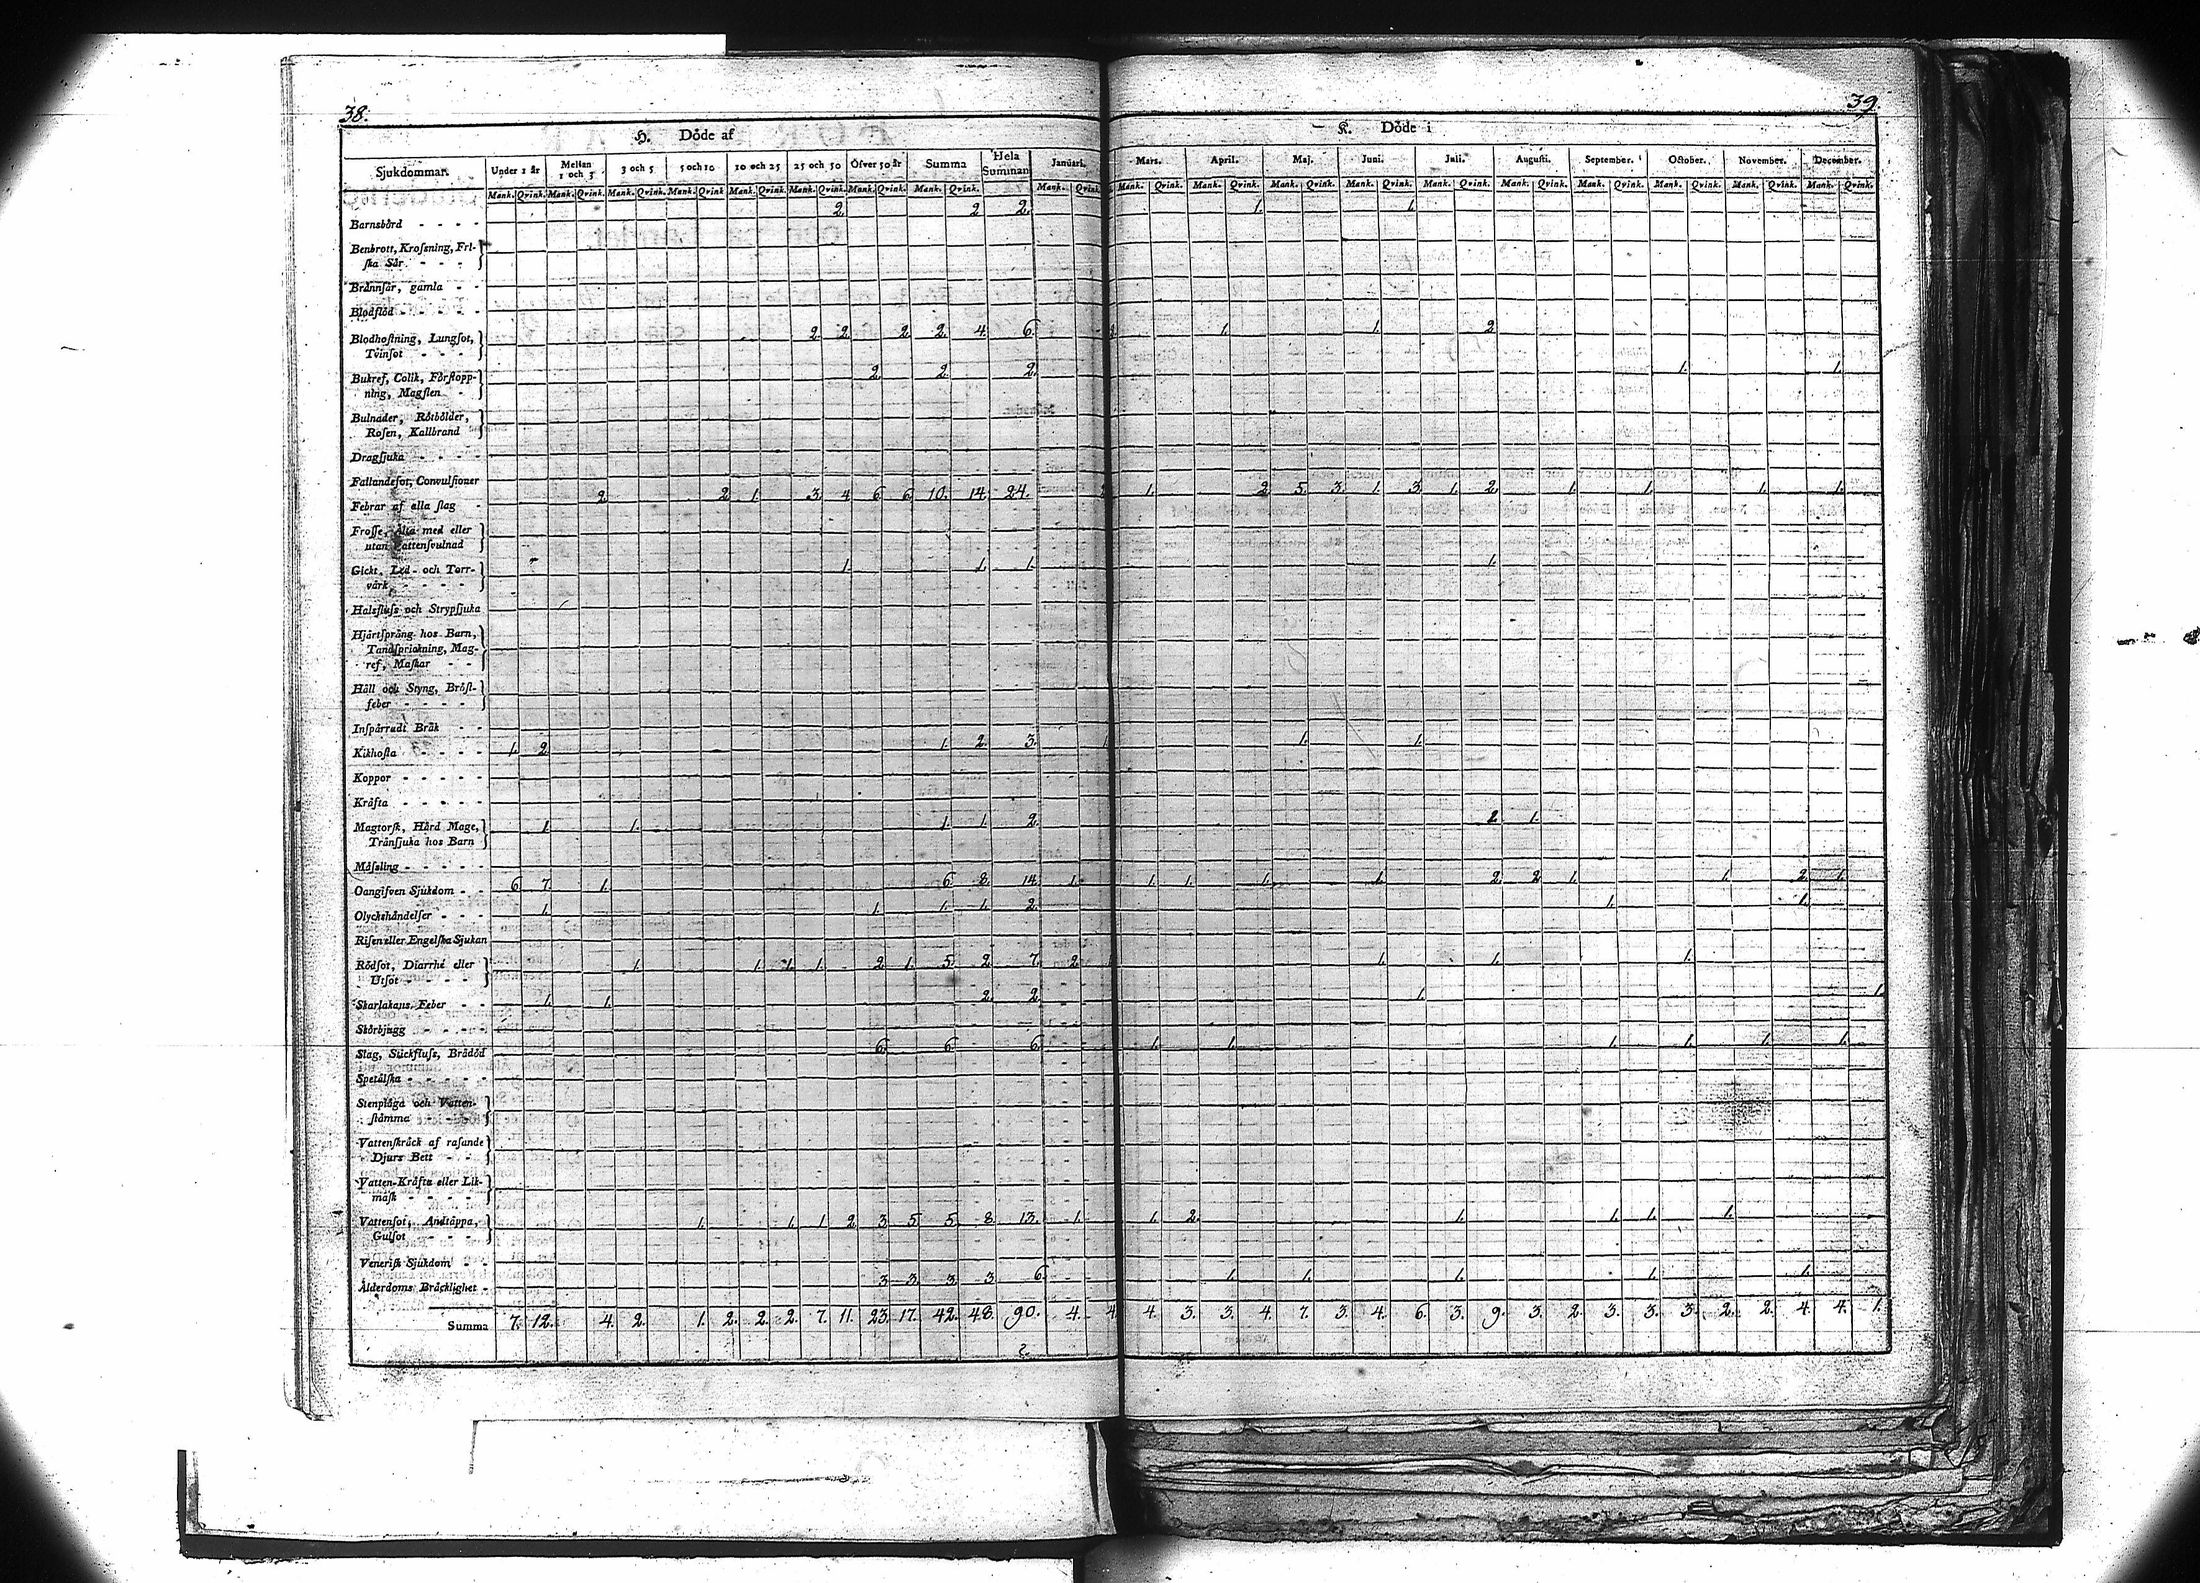 38.
39.
H. Döde af
K. Döde i
Sjukdommar. Under 1 år Mellan 1 och 3 3 och 5 5 och 10 10 och 25 25 och 50 Öfver 50 år Summa Hela Summan Januari. Mars. April. Maj. Juni. Juli. Augusti. September. October. November. December.
Mank. Qvink. Mank. Qvink. Mank. Qvink. Mank. Qvink. Mank. Qvink. Mank. Qvink. Mank. Qvink. Mank. Qvink. Mank. Qvink. Mank. Qvink. Mank. Qvink. Mank. Qvink. Mank. Qvink. Mank. Qvink. Mank. Qvink. Mank. Qvink. Mank. Qvink. Mank. Qvink. Mank. Qvink.
Barnsbörd - - - - 2. 2 2. 1. 1.
Benbrott, Krossning, Fri-
ska Sår - - -
Brännsår, gamla - -
Blodflöd - - - -
Blodhostning, Lungsot, 2. 2. 2. 2. 4. 6. 1. 1. 2
Tvinsot - - - -
Bukref, Colik, Förstopp- 2. 2. 2. 1. 1.
ning, Magsten -
Bulnader, Rötbölder,
Rosen, Kallbrand
Dragsjuka - - - -
Fallandesot, Convulsioner
Febrar af alla slag - 2. 2. 1. 3. 4. 6. 6. 10. 14. 24. 1. 2. 5. 3. 1. 3. 1. 2. 1. 1. 1. 1.
Frosse, Älta med eller
utan Vattensvulnad
Gickt, Led- och Torr- 1. 1. 1. 1.
värk - - - -
Halsfluss och Strypsjuka
Hjärtsprång hos Barn,
Tandsprickning, Mag-
ref, Maskar - -
Håll och Styng, Bröst-
feber - - - -
Inspärradt Bråk - -
Kikhosta - - - 1. 2. 1. 2. 3. 1. 1.
Koppor - - - - -
Kräfta - - - - -
Magtorsk, Hård Mage, 1. 1. 1. 1. 2. 2. 1.
Transjuka hos Barn
Mässling - - - - -
Oangifven Sjukdom - - 6. 7. 1. 6. 8. 14. 1. 1. 1. 1. 1. 2. 2. 1. 1. 2. 1.
Olyckshändelser - - - 1. 1. 1. 1. 2. 1. 1.
Risen eller Engelska Sjukan
Rödsot, Diarrhé eller 1. 1. 1. 1. 2. 1. 5. 2. 7. 2. 1. 1. 1.
Utsot - - - -
Skarlakans-Feber - - 1. 1. 2. 2. 1. 1.
Skörbjugg - - - -
Slag, Stickfluss, Brådöd 6. 6. 6. 1. 1. 1. 1. 1. 1.
Spetälska - - - - -
Stenplåga och Vatten-
stämma - - -
Vattenskräck af rasande
Djurs Bett - -
Vatten-Kräfta eller Lik-
mask - - - -
Vattensot, Andtäppa, 1. 1. 1. 2. 3. 5. 5. 8. 13. 1. 1. 2. 1. 1. 1. 1.
Gulsot - - -
Venerisk Sjukdom - -
Ålderdoms Bräcklighet - 3. 3. 3. 3 6. 1. 1. 1. 1. 1.
Summa 7. 12. 4. 2. 1. 2. 2. 2. 7. 11. 23. 17. 42. 48. 90. 4. 4 4. 3. 3. 4. 7. 3. 4. 6. 3. 9. 3. 2. 3. 3. 3. 2. 2. 4. 4. 1.